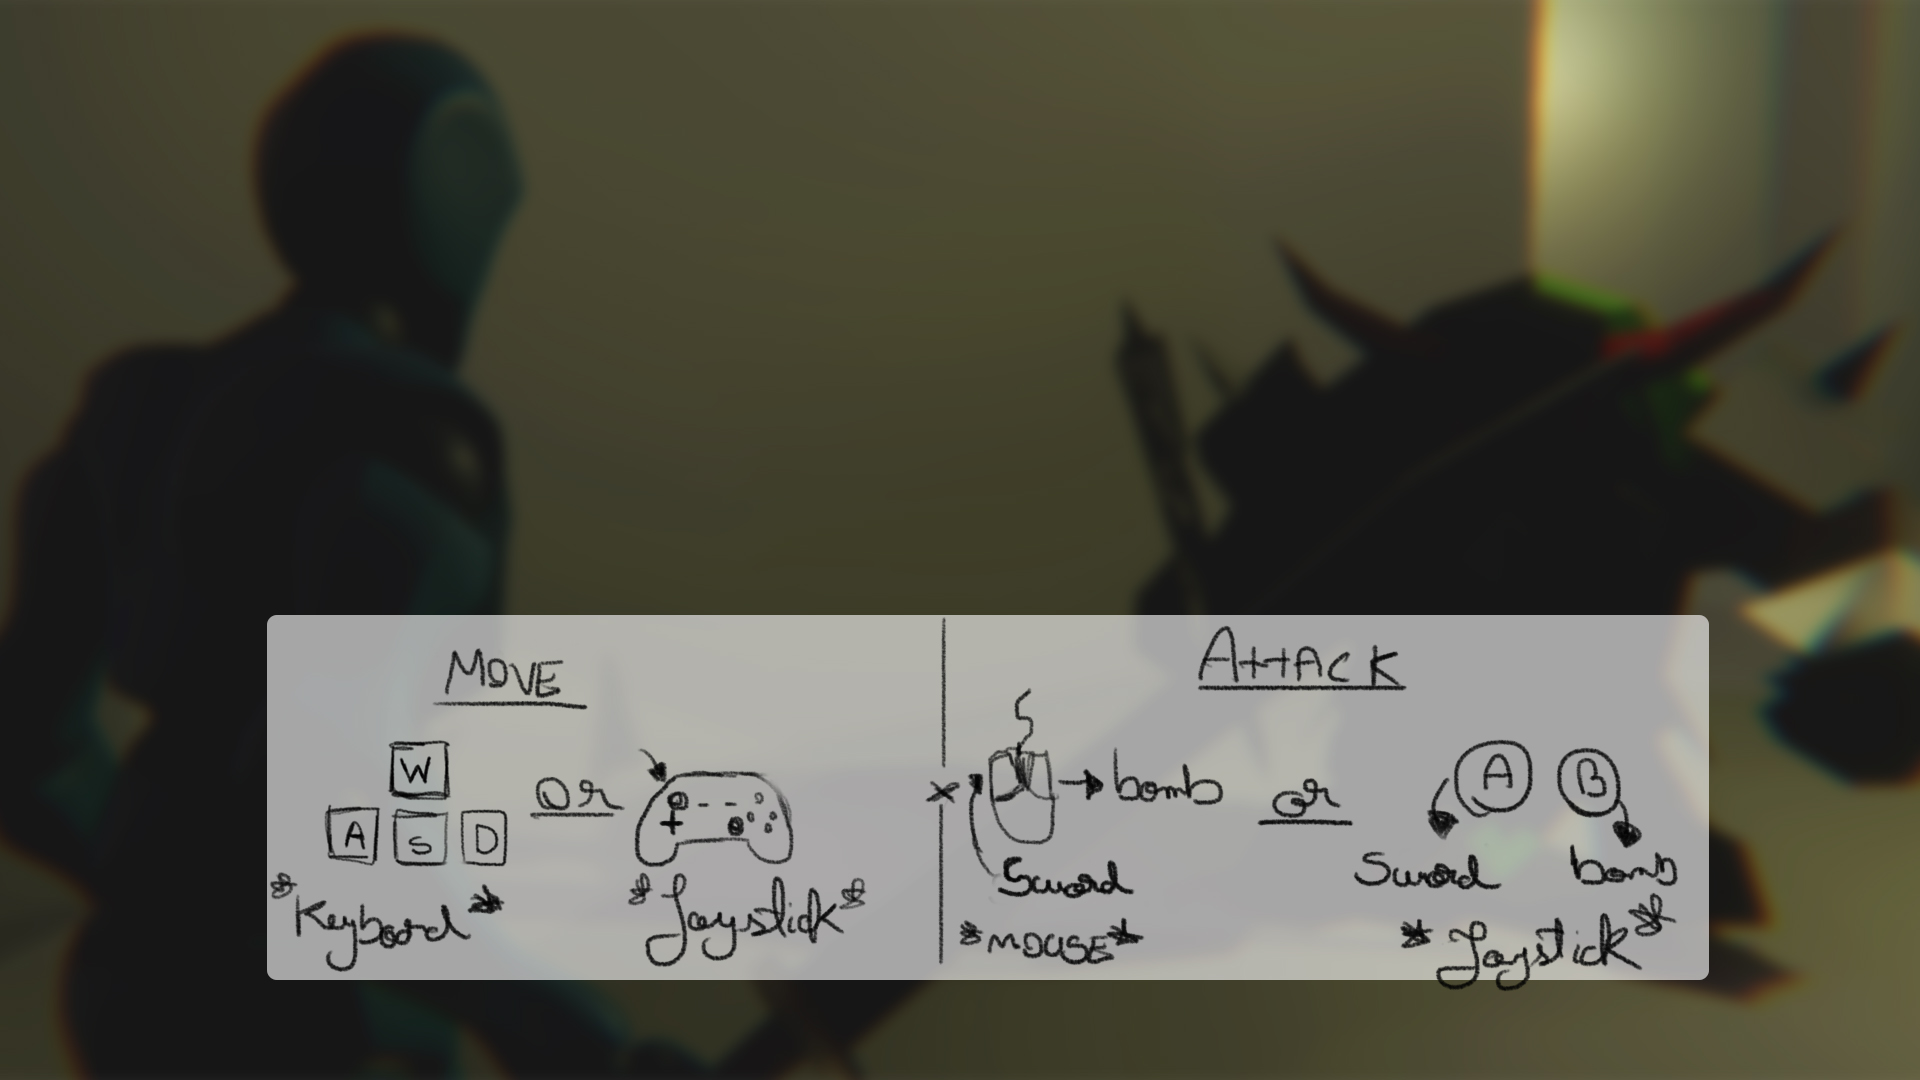 MOVE
W
A S D
or
*Keyboard*
*Joystick*
ATTACK
bomb
Sword
*MOUSE*
or
A B
Sword bomb
*Joystick*